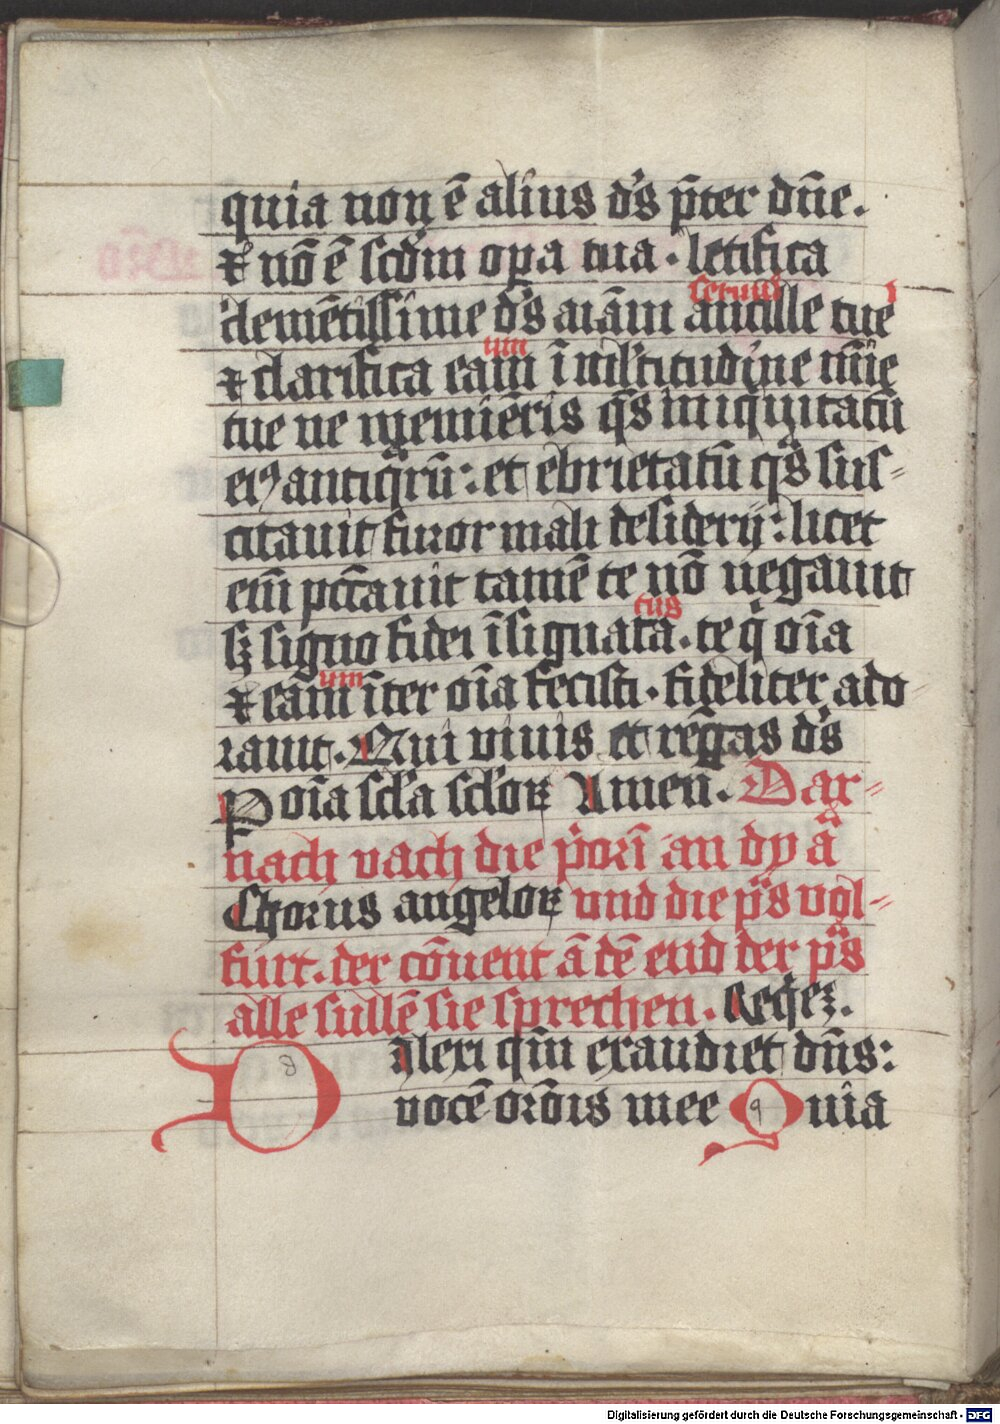 quia non ē alius ds̄ p̄ter dn̄e.
⁊ nō ē scd̄m oꝑa tua. letifica
serui i
clemētissime ds̄ aīam ancille tue
um
⁊ clarifica eam ī ml̄titudine mīe
tue ne memiēris qs̄ iniquitatū
eiꝰ antiqͣrū: et ebrietatū qͣs sus⸗
citauit furor mali desiderij: licet
em̄ pccauit tamē te nō negauit
tus
sꝫ signo fidei īsignata. te q̇ oīa
um
⁊ eam īter oīa fecisti. fideliter ado⸗
rauit. Qui viuis et regn̄as ds̄
P oīa scl̄a scl̄oꝝ Amen. Dar⸗
nach vach die p̓orī an dy aͣ
Chorus angeloꝝ vnd die pͣs vol⸗
furt. der cōuent ā dē end der pͣs
alle sullē sie sprechen. Reqͥeꝫ.
Dilexi qm̄ exaudiet dn̄s:
8
vocē orōis mee Quia
9
Digitalisierung gefördert durch die Deutsche Forschungsgemeinschaft - DFG